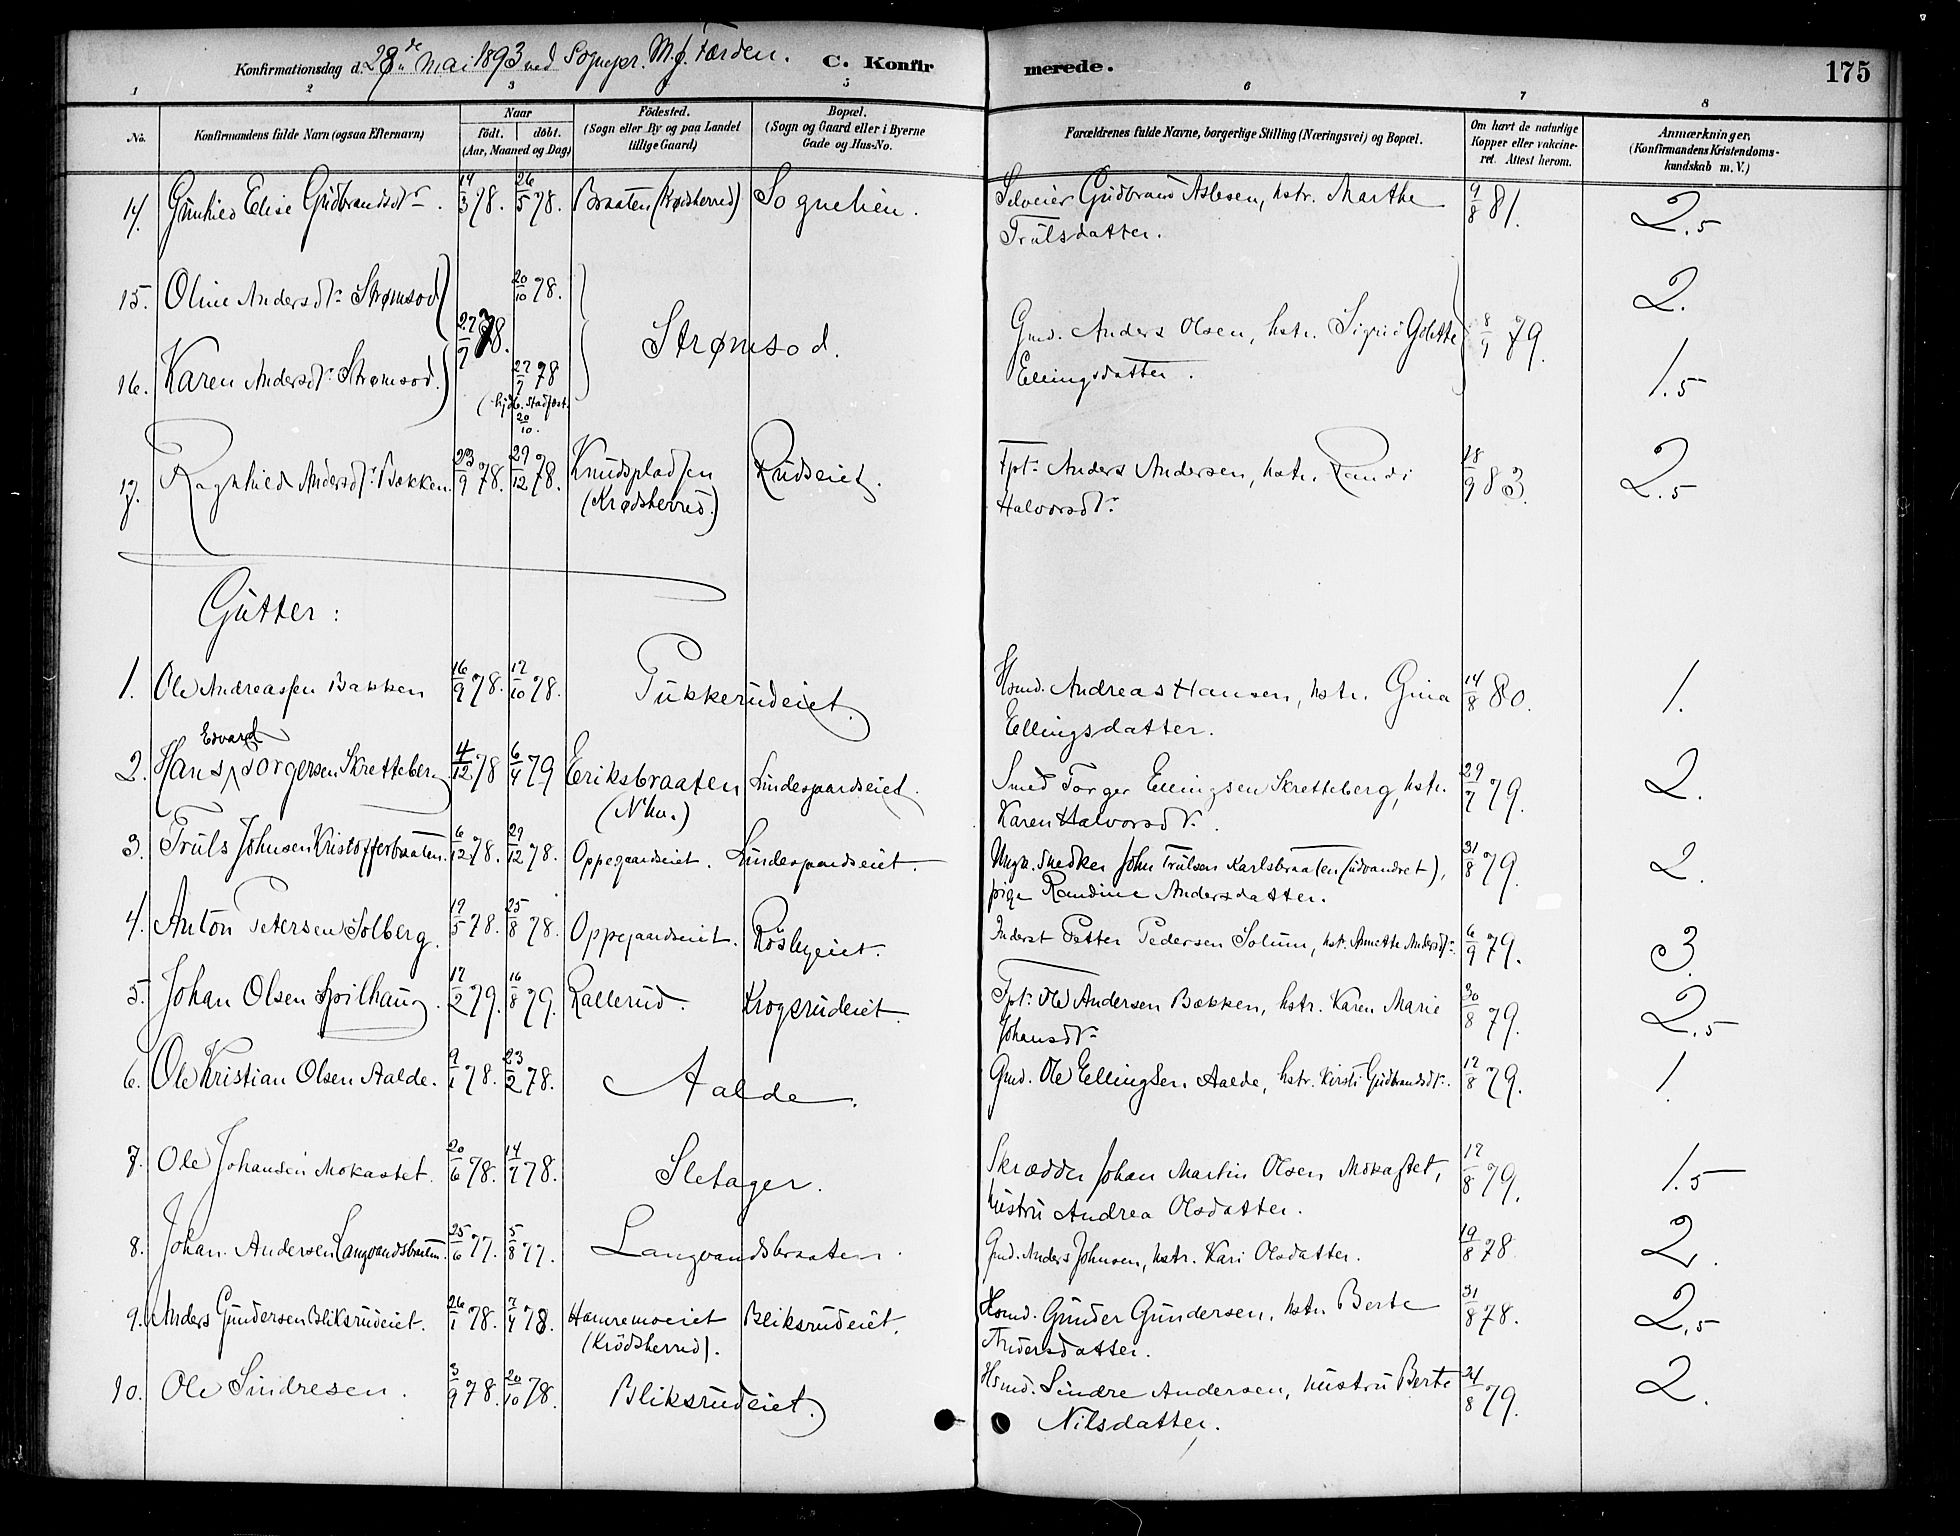 Konfirmationsdag d. 28de Mai 1893 ved Sognepr. M. J. Færden. C. Konfir merede. 175
1 2 3 5 6 7 8
No. Konfirmandens fulde Navn (ogsaa Efternavn) Naar født. døbt. (Aar, Maaned og Dag) Födested. (Sogn eller By og paa Landet tillige Gaard) Bopæl. (Sogn og Gaard eller i Byerne Gade og Hus-No. Forældrenes fulde Navne, borgerlige Stilling (Næringsvei) og Bopæl. Om havt de naturlige Kopper eller vakcineret. Attest herom. Anmærkninger. (Konfirmandens Kristendomskundskab m. V.)
14. Gunhild Elise Gudbrandsdr. 14/3 78. 26/5 78. Braaten (Krødsherred) Sognelien. Selveier Gudbrand Aslesen, hstr. Marthe 9/8 81. 2.5
Trulsdatter.
15. Oline Andersdr. Strømsod 20/10 78. 2.
27/7 78. Strømsod. Gmd. Anders Olsen, hstr. Sigrid Golette 8/9 79.
16. Karen Andersdr. Strømsod. 27/7 78 Ellingsdatter. 1.5
(hjdb. stadfæst. 20/10.
17. Ragnhild Andersdr. Bakken. 23/9 78. 29/12 78. Knudspladsen Rudseiet. Fpt. Anders Andersen, hstr. Randi 18/9 83. 2.5
(Krødsherred.) Halvorsdr.
Gutter:
1. Ole Andreassen Bakken 16/9 78. 17/10 78. Pukkerudeiet. Hsmd. Andreas Hansen, hstr. Gina 14/8 80. 1.
Ellingsdatter.
Edvard
2. Hans Torgersen Skretteberg 4/12 78 6/4 79 Eriksbraaten Lindegaardseiet. Smed Torger Ellingsen Skretteberg, hstr. 29/7 79. 2.
(N'ho.) Karen Halvorsdr.
3. Truls Johnsen Kristofferbraaten. 6/12 78. 29/12 78. Oppegaardseiet. Lindegaardseiet. Ungk. Snedker John Trulsen Karlsbraaten (udvandret), 31/8 79. 2.
pige Randine Andersdatter.
4. Anton Petersen Solberg. 19/5 78. 25/8 78. Oppegaardseiet. Røsbyeiet. Inderst Petter Pedersen Solum, hst. Annette Andersdr. 6/9 79. 3.
5. Johan Olsen Spilhaug. 17/2 79. 16/8 79. Rallerud. Krogsrudeiet. Fpt. Ole Andersen Bakken, hstr. Karen Marie 30/8 79. 2.5
Johansdr.
6. Ole Kristian Olsen Aalde. 9/1 78. 23/2 78. Aalde. Gmd. Ole Ellingsen Aalde, hstr. Kirsti Gudbrandsdr. 17/8 79. 1.
7. Ole Johansen Mokastet. 20/6 78. 14/7 78. Sletager. Skrædder Johan Martin Olsen Mokastet, 17/8 79. 1.5
hustru Andrea Olsdatter.
8. Johan Andersen Langvandsbraaten. 25/6 77. 5/8 77. Langvandsbraaten. Gmd. Anders Johnsen, hstr. Kari Olsdatter. 19/8 78 2.
9. Anders Gundersen Bliksrudeiet. 26/1 78. 7/4 78. Hamremoeiet Bliksrudeiet. Hsmd. Gunder Gundersen, hstr. Berte 31/8 78. 2.5
(Krödsherred). Andersdatter.
10. Ole Sindresen. 3/9 78. 20/10 78. Bliksrudeiet. Hsmd. Sindre Andersen, hustru Berte 21/8 79. 2.
Nilsdatter.